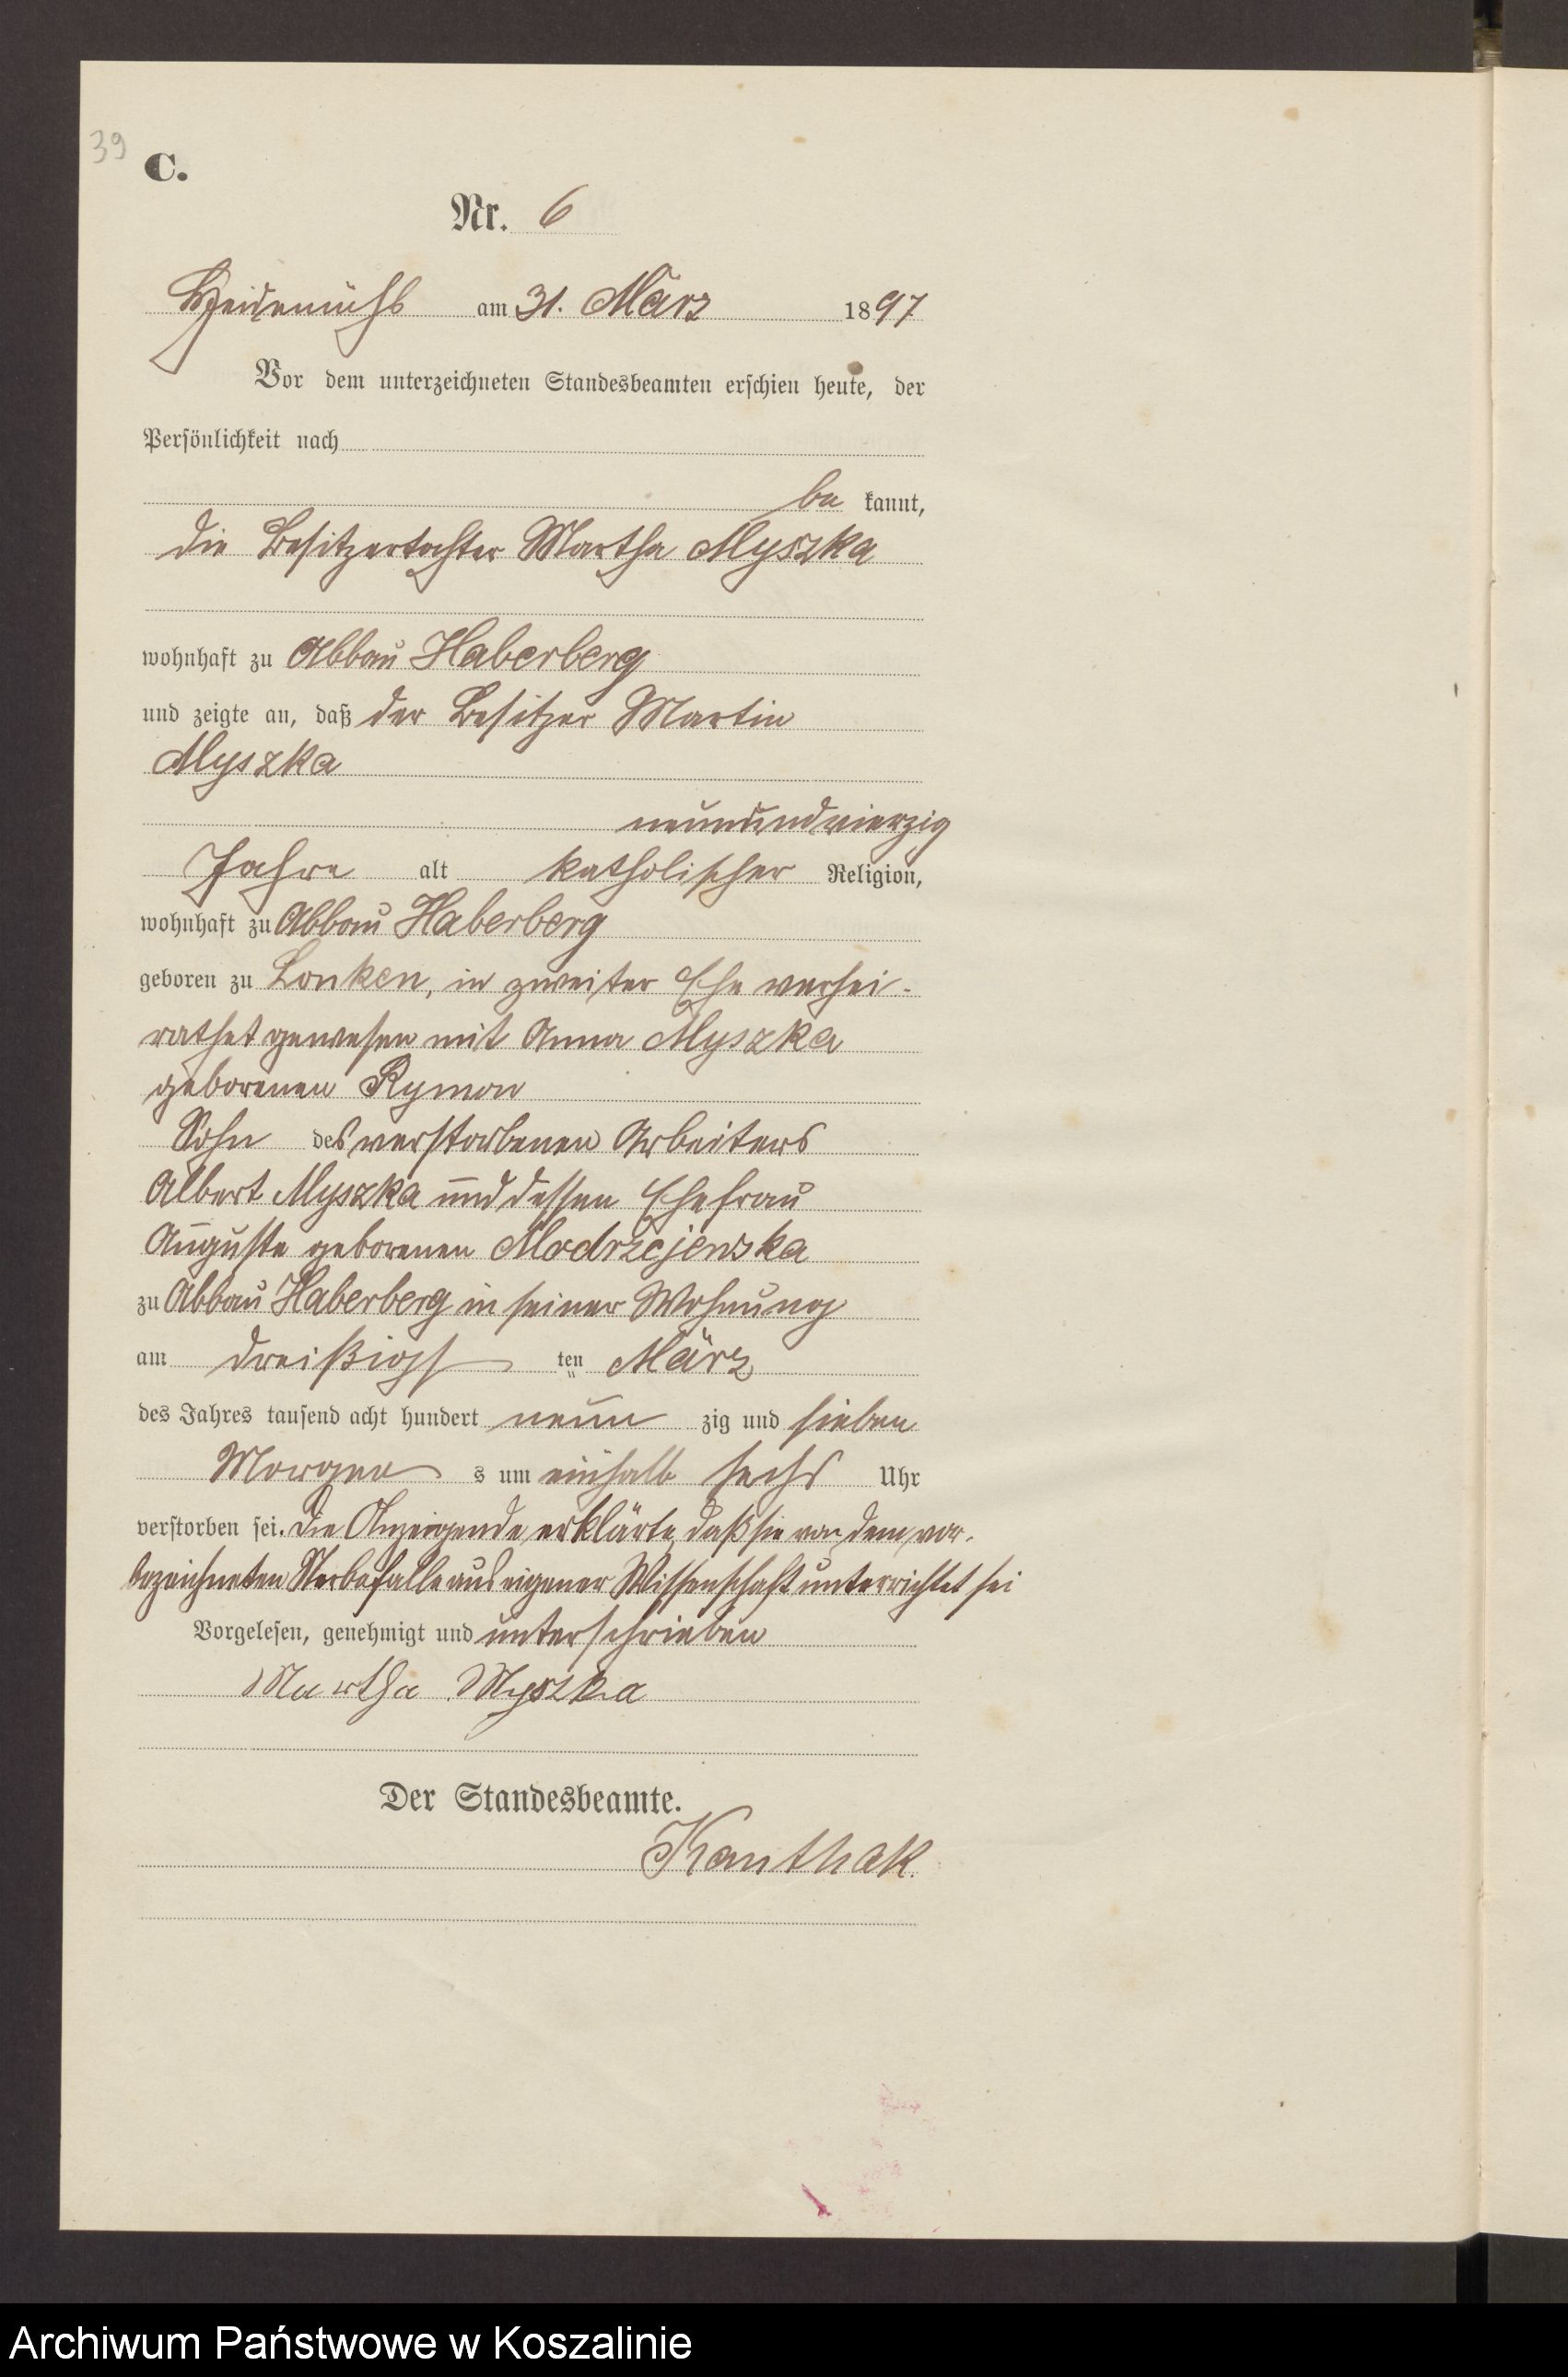 39
C.
Nr. 6
Heidemühl am 31. März 1897
Vor dem unterzeichneten Standesbeamten erschien heute, der
Persönlichkeit nach
be kannt,
die Besitzertochter Martha Myszka
wohnhaft zu Abbau Haberberg
und zeigte an, daß der Besitzer Martin
Myszka
neunundvierzig
Jahre alt katholischer Religion,
wohnhaft zu Abbau Haberberg
geboren zu Lonken, in zweiter Ehe verhei-
rathet gewesen mit Anna Myszka
geborenen Rymon
Sohn des verstorbenen Arbeiters
Albert Myszka und dessen Ehefrau
Auguste geborenen Modrzejewska
zu Abbau Haberberg in seiner Wohnung
am dreißigst ten März
des Jahres tausend acht hundert neun zig und sieben
Morgen s um einhalb sechs Uhr
verstorben sei. Die Anzeigende erklärte, daß sie von dem vor-
bezeichneten Sterbefalle aus eigener Wissenschaft unterrichtet sei
Vorgelesen, genehmigt und unterschrieben
Martha Myszka
Der Standesbeamte.
Kanthak.
Archiwum Państwowe w Koszalinie